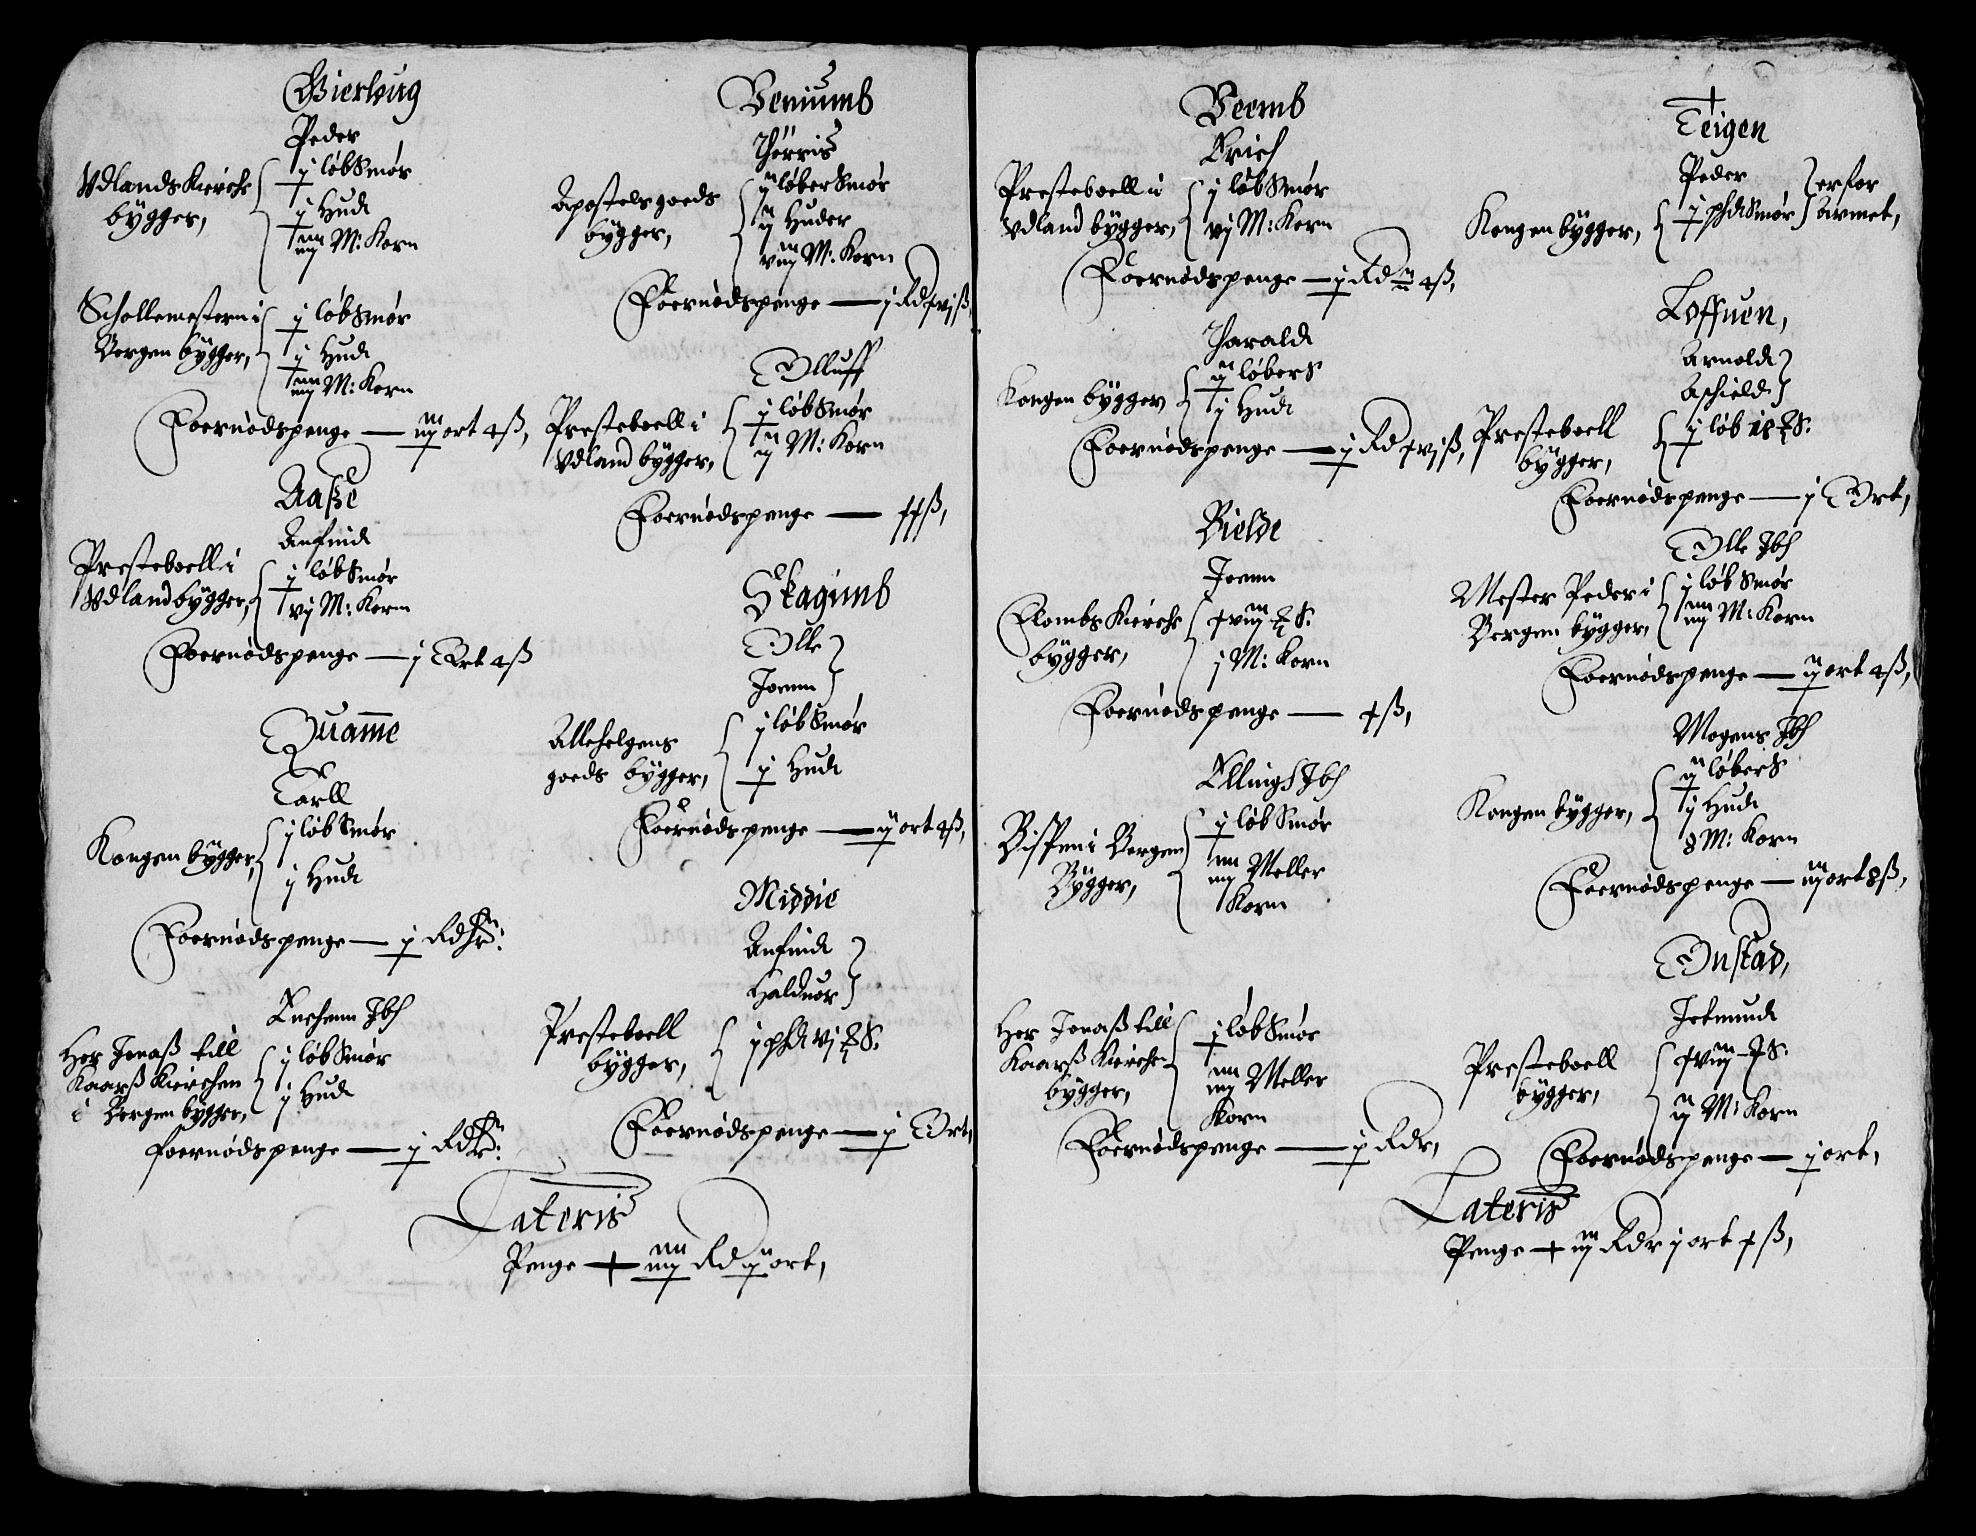 Bierlwig
Peder
Vdlands Kierche
bygger,
j løb Smør
j Hud
iiij M: Korn
Schollemesteren i
Bergen bygger,
j løb Smør
j Hud
iiij M: Korn
Foernødspenge — iij ort 4 ß,
Aaße
Anfind
Presteboell i
Vdland bygger,
j løb Smør
vj M: Korn
Foernødspenge — j Ort 4 ß
Quam̄e
Tarll
Kongen bygger,
j løb Smør
j Hud
Foernødspenge — j Rdlr:
Knehenn Jbh
Her Jonaß till
Kaarß Kierchen
i Bergen bygger,
j løb Smør
j Hud
foernødspenge — j Rdlr:
Beniumb
Thørris
Apostels goeds
bygger,
ij løber Smør
ij Huder
viij M: Korn
Foernødspenge — j Rd xvj ß,
Olluff
Presteboell i
Vdland bygger,
j løb Smør
ij M: Korn
Foernødspenge — xx ß,
Skagiimb
Olle
Joenn
Allehelgens
goeds bygger,
j løb Smør
j Hud
Foernødspenge — ij ort 4 ß,
Middie
Anfind
Halduor
Presteboell
bygger,
j phd vj ℔ S:
Foernødspenge — j Ort,
Lateris
Penge — iiij Rd ij ort,
Beemb
Erich
Presteboell i
Vdland bygger,
j løb Smør
vj M: Korn
Foernødspenge — j Rd 4 ß,
Harald
Kongen bygger
ij løber S
j Hud
Foernødspenge — j Rd xvj ß,
Bielde
Joenn
Flombs Kierche
bygger,
xviij ℔ S:
j M: Korn
Foernødspenge — x ß,
Elling Jbh
Bispen i Bergen
Bygger,
j løb Smør
iiij Meller
Korn
Her Jonaß till
Kaarß Kierche
bygger,
j løb Smør
iiij Meller
Korn
Foernødspenge — j Rdr,
Teigen
Peder
Kongen bygger,
j phd Smør
erfor
armet,
Loffuen,
Arnold
Aschield
Presteboell
bygger,
j løb 18 ℔ S:
Foernødspenge — j Ort,
Olle Jbh
Mester Peder i
Bergen bygger,
j løb Smør
iiij M: Korn
Foernødspenge — ij ort 4 ß,
Mogens Jbh
Kongen bygger,
ij løber S
j Hud
8 M: Korn
Foernødspenge — iij ort 8 ß,
Onstad,
Jetmund
Presteboell
bygger,
xviij ℔ S:
ij M: Korn
Foernødspenge — j ort,
Lateris
Penge — iij Rdr j ort x ß,